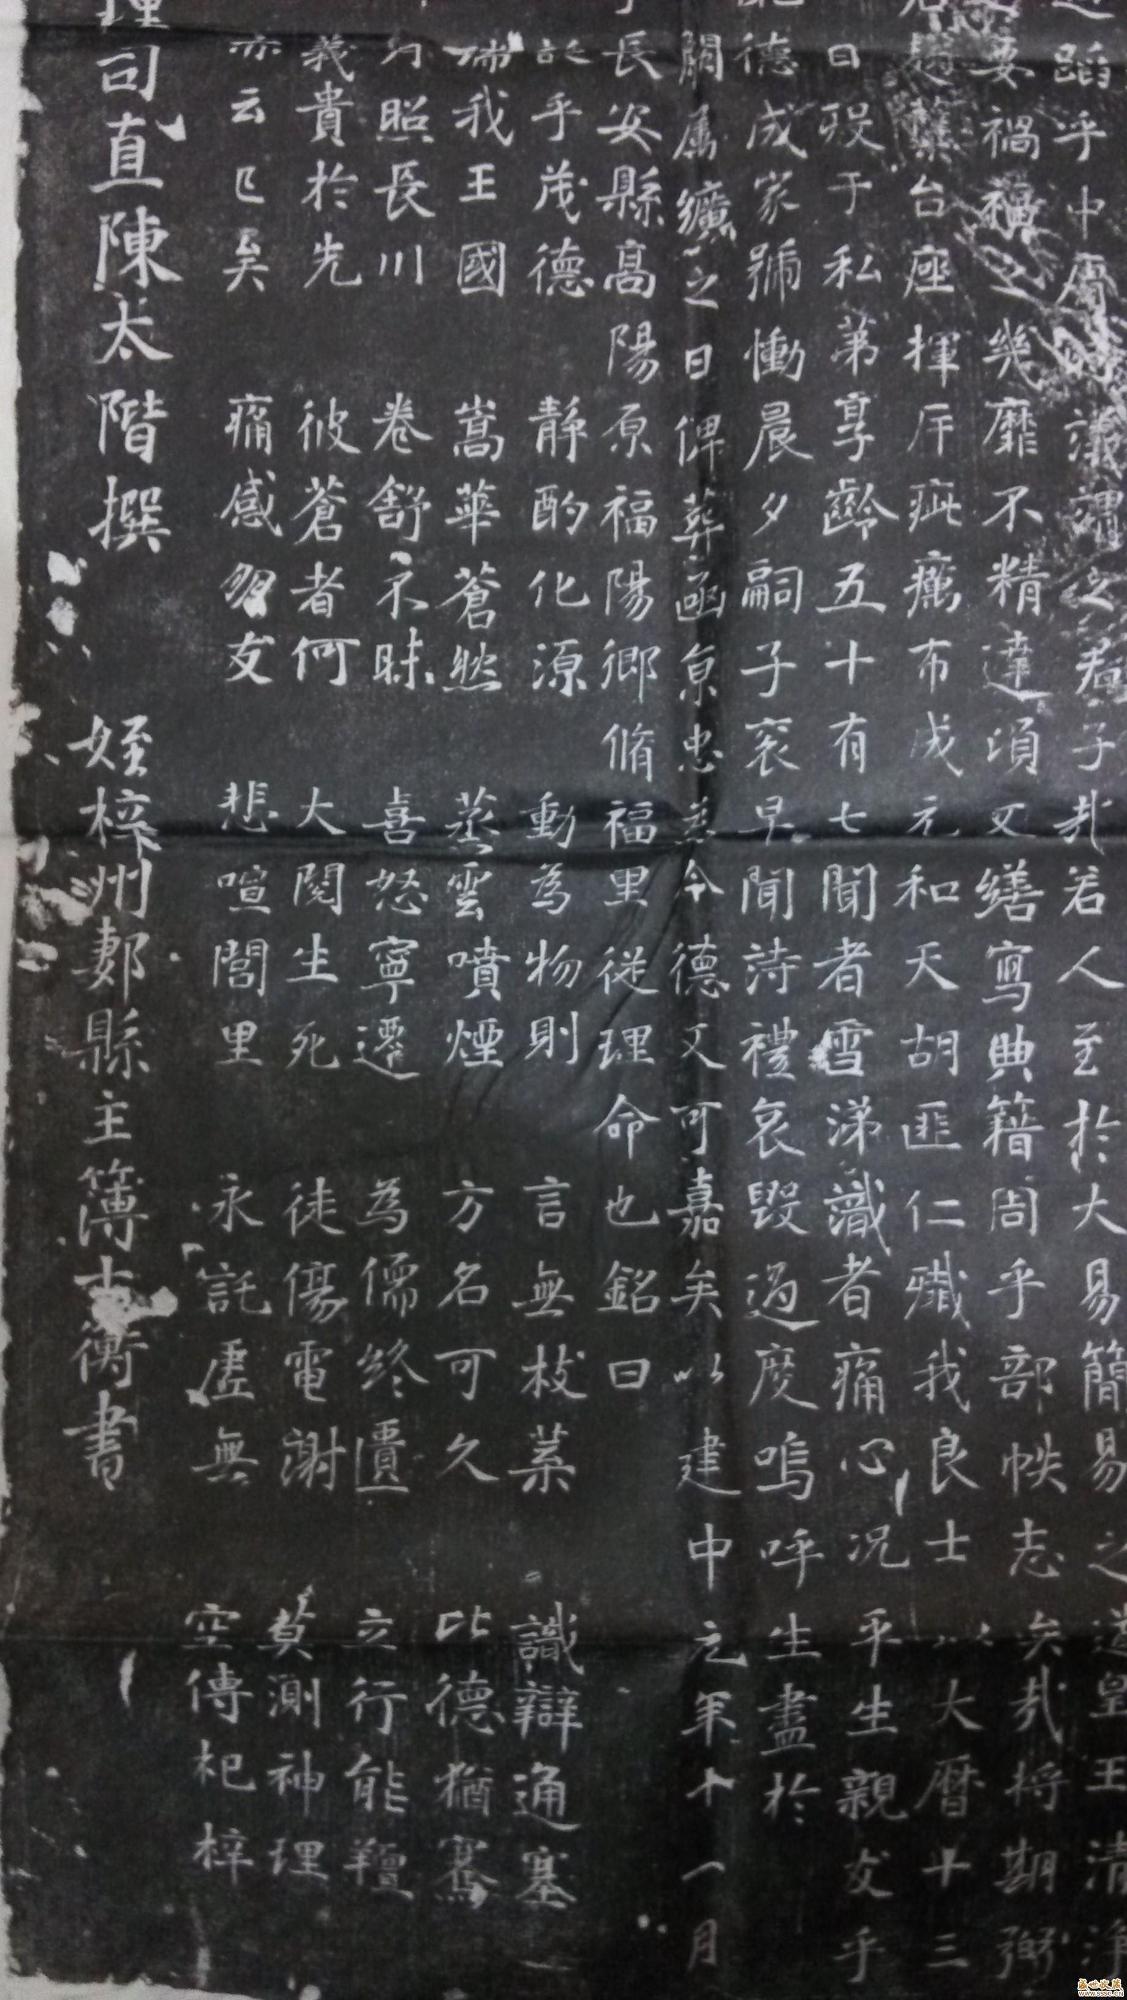 蹈乎中庸時議謂之君子哉若人至於大易簡易之道皇王清淨
要禍福之幾靡不精達項又繕寫典籍周乎部帙志矣哉將期弼
台座揮斥疵癘布成元和天胡匪仁殲我良士以大曆十三
日歿于私第享齡五十有七聞者雪涕識者痛心況平生親友乎
德成家號慟晨夕嗣子衮早聞詩禮哀毀過度嗚呼生盡於
關屬纊之日俾葬函京忠並令德又可嘉矣以建中元年十一月
長安縣高陽原福陽鄉脩福里從理命也銘曰
託乎茂德 靜酌化源 動為物則 言無枝葉 識辯通塞
瑞我王國 嵩華蒼然 蒸雲噴煙 方名可久 比德猶騫
照長川 卷舒不昧 喜怒寧遷 為儒終匱 立行能羶
義貴於先 彼蒼者何 大閱生死 徒傷電謝 莫測神理
亦云已矣 痛感朋友 悲喧閭里 永託虛無 空傳杞梓
理司直陳太階撰 姪梓州郪縣主簿士衡書
盛世收藏
www.sssc.cn